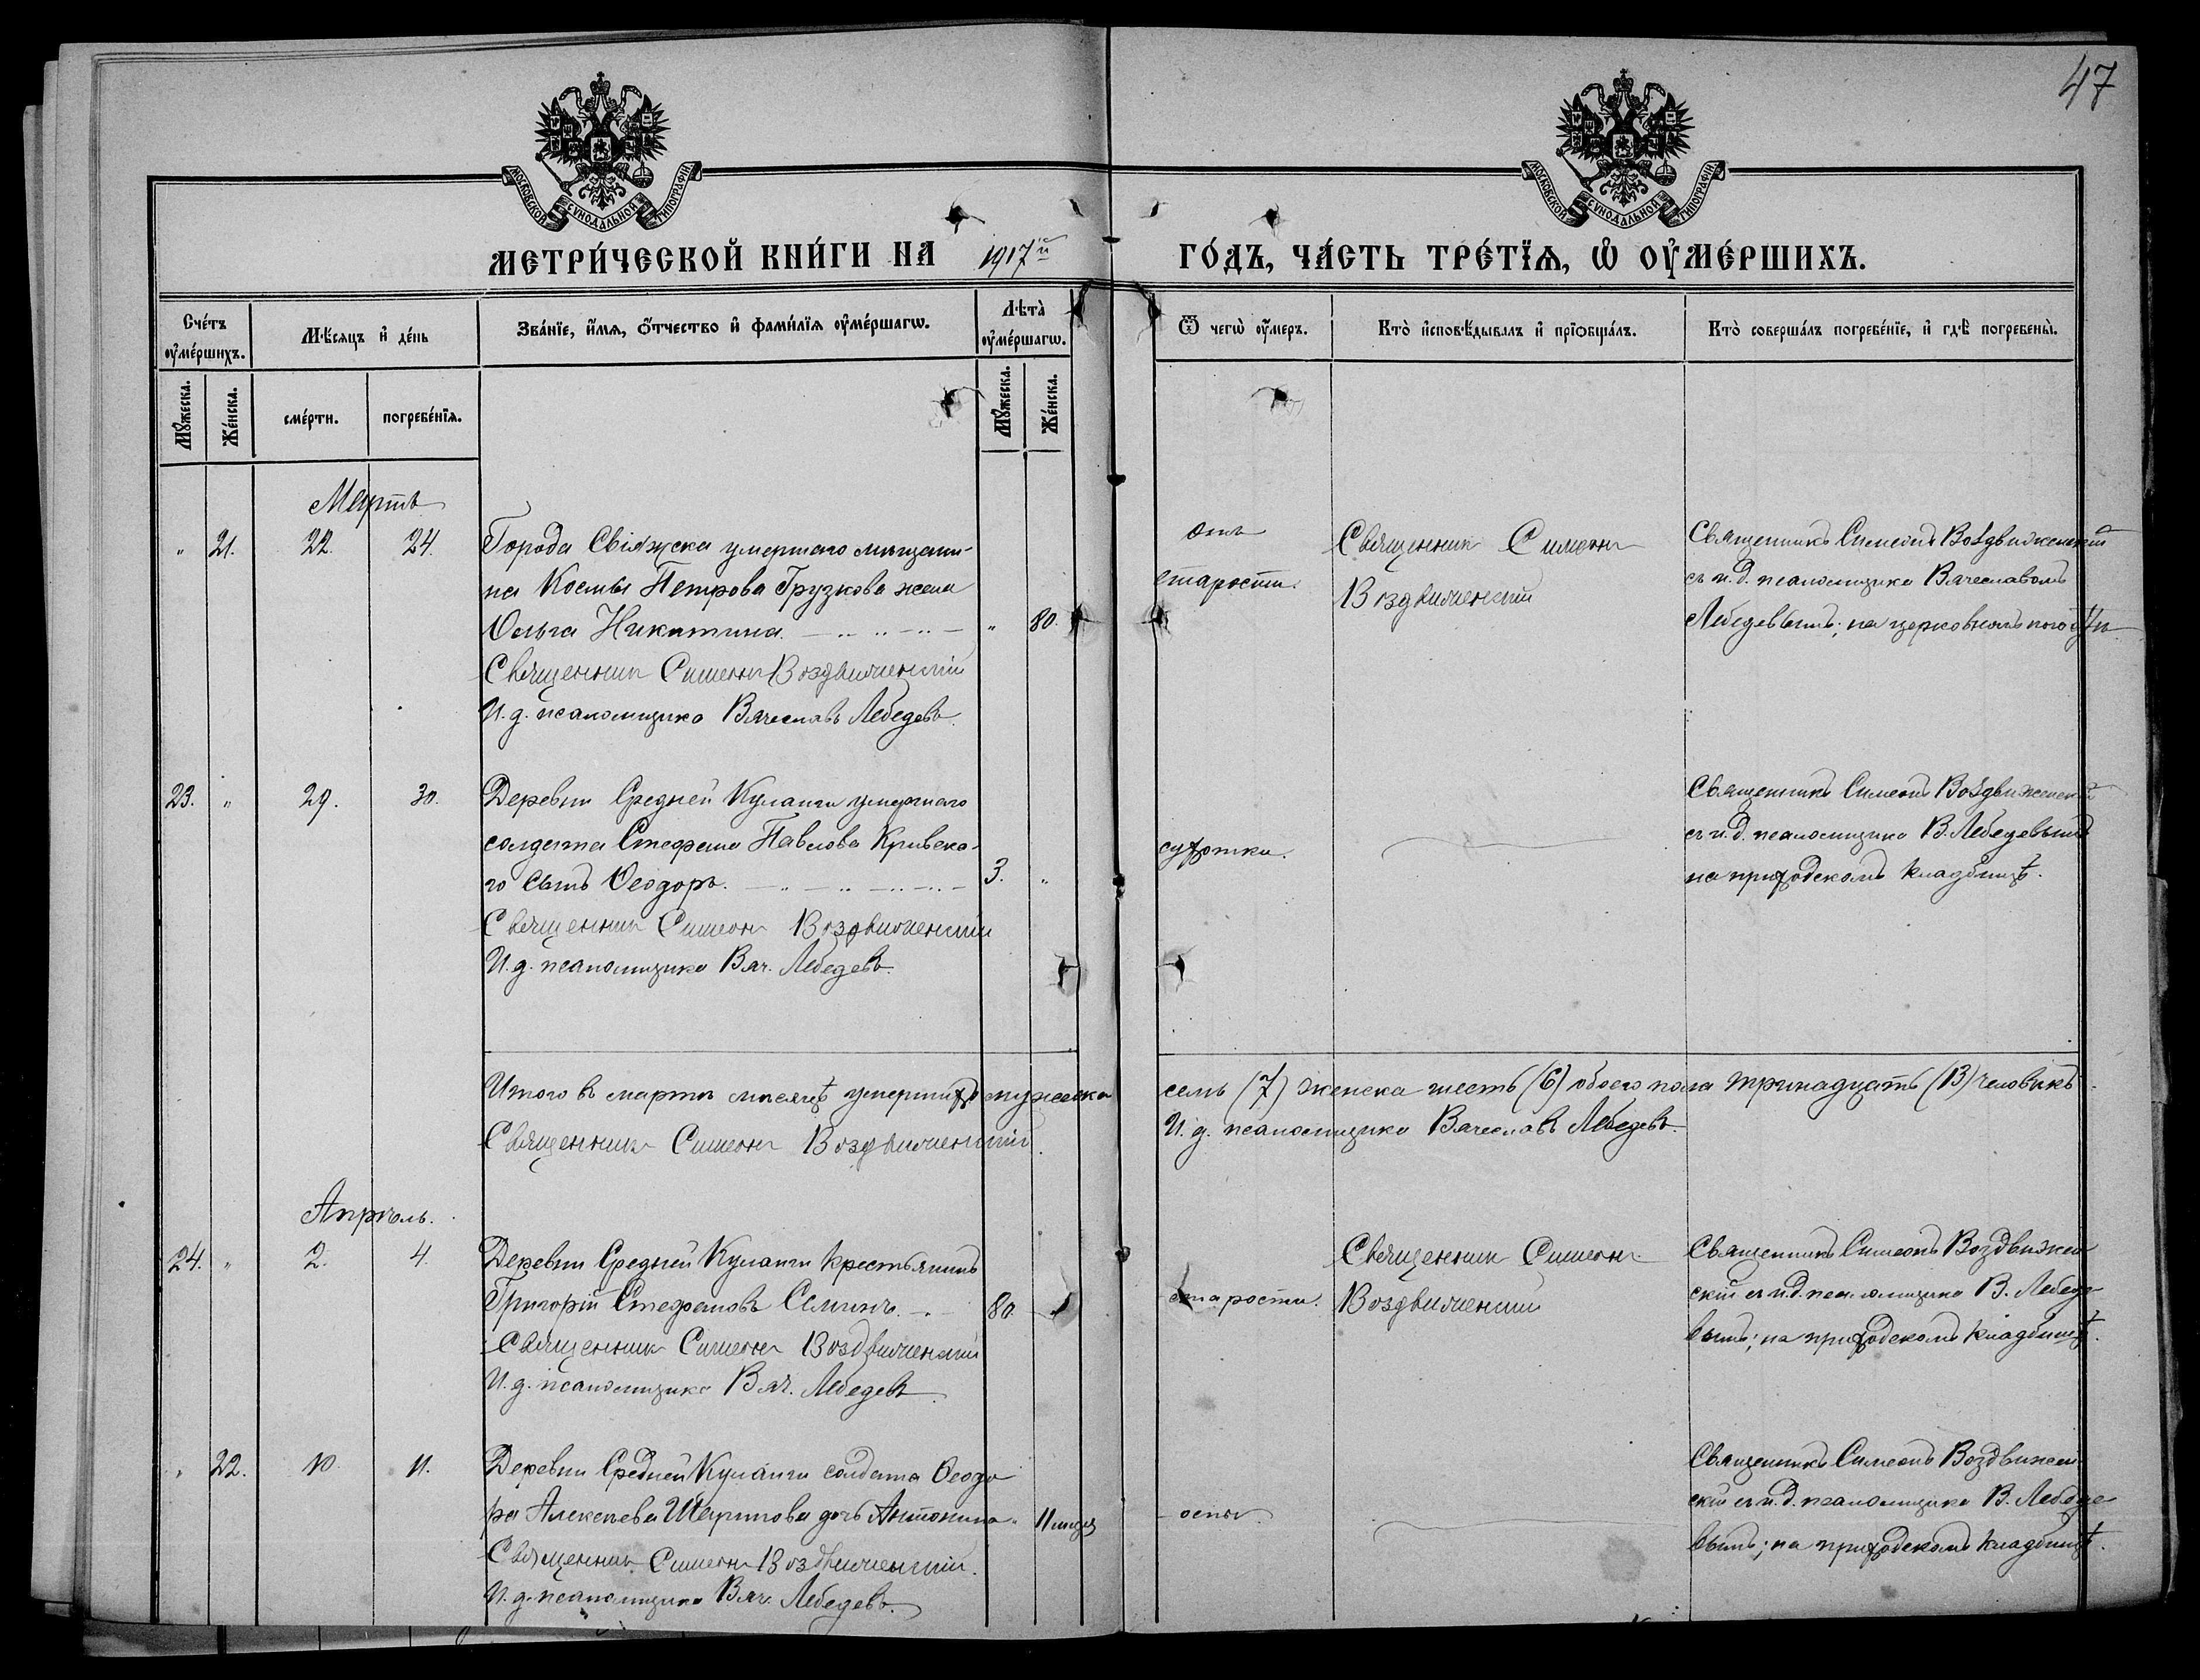 47
МОСКОВСКОЙ СѴНОДАЛЬНОЙ ТИПОГРАФІИ
МОСКОВСКОЙ СѴНОДАЛЬНОЙ ТИПОГРАФІИ
МЕТРИ́ЧЕСКОЙ КНИ́ГИ НА 1917й ГО́ДЪ, ЧА́СТЬ ТРЕ́ТЇѦ, Ѡ҆ ОУ҆МЕ́РШИХЪ.
Сче́тъ оу҆ме́ршихъ.
Мѣ́сѧцъ и҆ де́нь
Зва́нїе, и҆́мѧ, ѻ҆́тчество и҆ фами́лїѧ оу҆ме́ршагѡ.
Лѣта̀ оу҆ме́ршагѡ.
Ѿ чегѡ̀ оу҆́меръ.
Кто̀ и҆сповѣ́дывалъ и҆ прїѡбща́лъ.
Кто̀ соверша́лъ погребе́нїе, и҆ гдѣ̀ погребены̀.
Мꙋ́жеска.
Же́нска.
сме́рти.
погребе́нїѧ.
Мꙋ́жеска.
Же́нска.
Мартъ
" 21. 22. 24. Города Свіяжска умершаго мѣщани-
на Космы Петрова Грузкова жена
Ольга Никитина. " 80.
Священник Симеон Воздвиженскій
И. д. псаломщика Вячеславъ Лебедевъ.
отъ
старости.
Священник Симеон
Воздвиженский
Священникъ Симеонъ Воздвиженскій
съ и. д. псаломщика Вячеславомъ
Лебедевымъ; на церковномъ погостѣ
23. " 29. 30. Деревни Средней Куланги умершаго
солдата Стефана Павлова Кривска-
го сынъ Ѳеодоръ. 3. "
Священник Симеон Воздвиженский
И. д. псаломщика Вяч. Лебедевъ.
сухотка.
Священникъ Симеонъ Воздвиженскій
съ и. д. псаломщика В. Лебедевымъ
на приходскомъ кладбищѣ.
Итого въ мартѣ мѣсяцѣ умершихъ мужеска семь (7) женска шесть (6) обоего пола тринадцать (13) человѣкъ.
Священник Симеон Воздвиженский.
И. д. псаломщика Вячеславъ Лебедевъ.
Апрѣль.
24. " 2. 4. Деревни Средней Куланги крестьянинъ
Григорій Стефановъ Семинъ. 80.
Священник Симеон Воздвиженский
И. д. псаломщика Вяч. Лебедевъ
старости.
Священник Симеон
Воздвиженский
Священникъ Симеонъ Воздвижен
скій съ и. д. псаломщика В. Лебеде-
вымъ; на приходскомъ кладбищѣ.
" 22. 10. 11. Деревни Средней Куланги солдата Ѳеодо
ра Алексѣева дочь Антонина. 11 мѣсяц
Священник Симеон Воздвиженский.
И. д. псаломщика Вяч. Лебедевъ.
оспы.
Священникъ Симеонъ Воздвижен
скій съ и. д. псаломщика В. Лебеде
вымъ; на приходскомъ кладбищѣ.